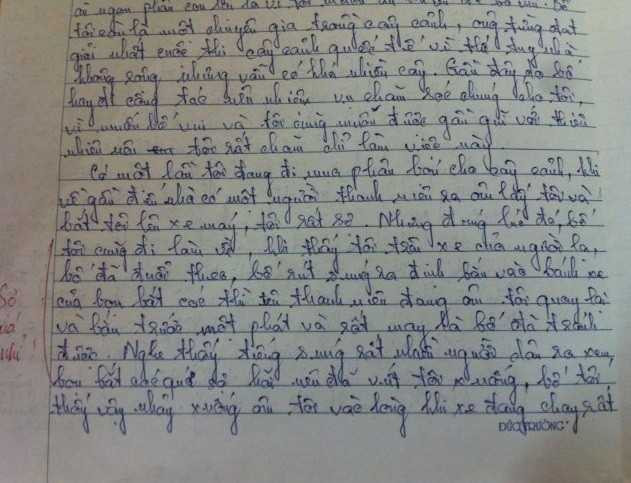 tôi còn là một chuyên gia trong cây cảnh, ông từng đạt
giải nhất cuộc thi cây cảnh quốc tế vì thế tuy nhà
không rộng nhưng vẫn có khá nhiều cây. Gần đây do bố
hay đi công tác nên nhiệm vụ chăm sóc chúng cho tôi,
vì muốn bố vui và tôi cũng muốn được gần gũi với thiên
nhiên nên tôi rất chăm chỉ làm việc này.
Có một lần tôi đang đi mua phân bón cho cây cảnh, khi
về gần đến nhà có một người thanh niên ra ôm lấy tôi và
bắt tôi lên xe máy, tôi rất sợ. Nhưng đúng lúc đó, bố
tôi cũng đi làm về, khi thấy tôi trên xe của người lạ,
bố đã đuổi theo, bố rút súng ra định bắn vào bánh xe
của bọn bắt cóc thì tên thanh niên đang ôm tôi quay lại
và bắn trước một phát và rất may là bố đã tránh
được. Nghe thấy tiếng súng rất nhiều người dân ra xem,
bọn bắt cóc quá sợ hãi nên đã vứt tôi xuống, bố tôi
thấy vậy nhảy xuống ôm tôi vào lòng khi xe đang chạy rất